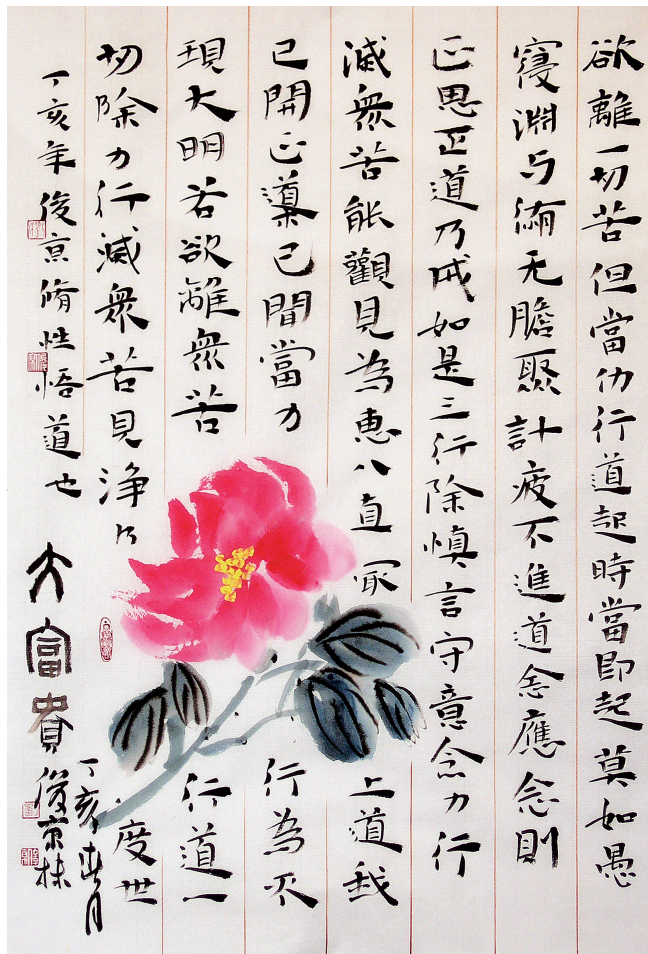 欲離一切苦但當仂行道起時當即起莫如愚
寢淵与无膽聚計疲不進道念應念則
正思正道乃成如是三行除慎言守意念力行
滅衆苦能觀見為惠八直冣上道我
已開正導已聞當力行為不
現大明若欲離衆苦行道一
切除力行滅衆苦見浄乃度世
丁亥年俊京脩性悟道也
大富貴
丁亥春月
俊京抹